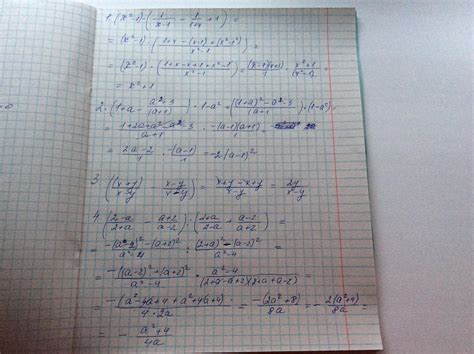 1. (x²-1)·(1/(x-1) - 1/(1+x) + 1) =
= (x²-1)·((1+x-(x-1)+(x²-1))/(x²-1)) =
= (x²-1)·((1+x-x+1+x²-1)/(x²-1)) = ((x-1)(x+1))/1 · (x²+1)/(x²-1) =
= x²+1
2. (1+a - (a²+3)/(a+1)) : 1-a² = ((1+a)²-a²-3)/(a+1) · (1-a²) =
= (1+2a+a²-a²-3)/(a+1) · (-(a-1)(a+1))/1 =
= (2a-2)/1 · (-(a-1))/1 = -2(a-1)²
3. ((x+y)/(x-y) - (x-y)/(x-y)) = (x+y-x+y)/(x-y) = 2y/(x-y)
4. ((2-a)/(2+a) - (a+2)/(a-2)) : ((2+a)/(2-a) + (a-2)/(a+2)) =
= (-(a-2)²-(a+2)²)/(a²-4) : ((2+a)²-(a-2)²)/(a²-4) =
= (-((a-2)²+(a+2)²))/(a²-4) · (a²-4)/((2+a-a+2)(2+a+a-2)) =
= (-(a²-4a+4+a²+4a+4))/(4·2a) = -(2a²+8)/8a = -2(a²+4)/8a =
= -(a²+4)/4a